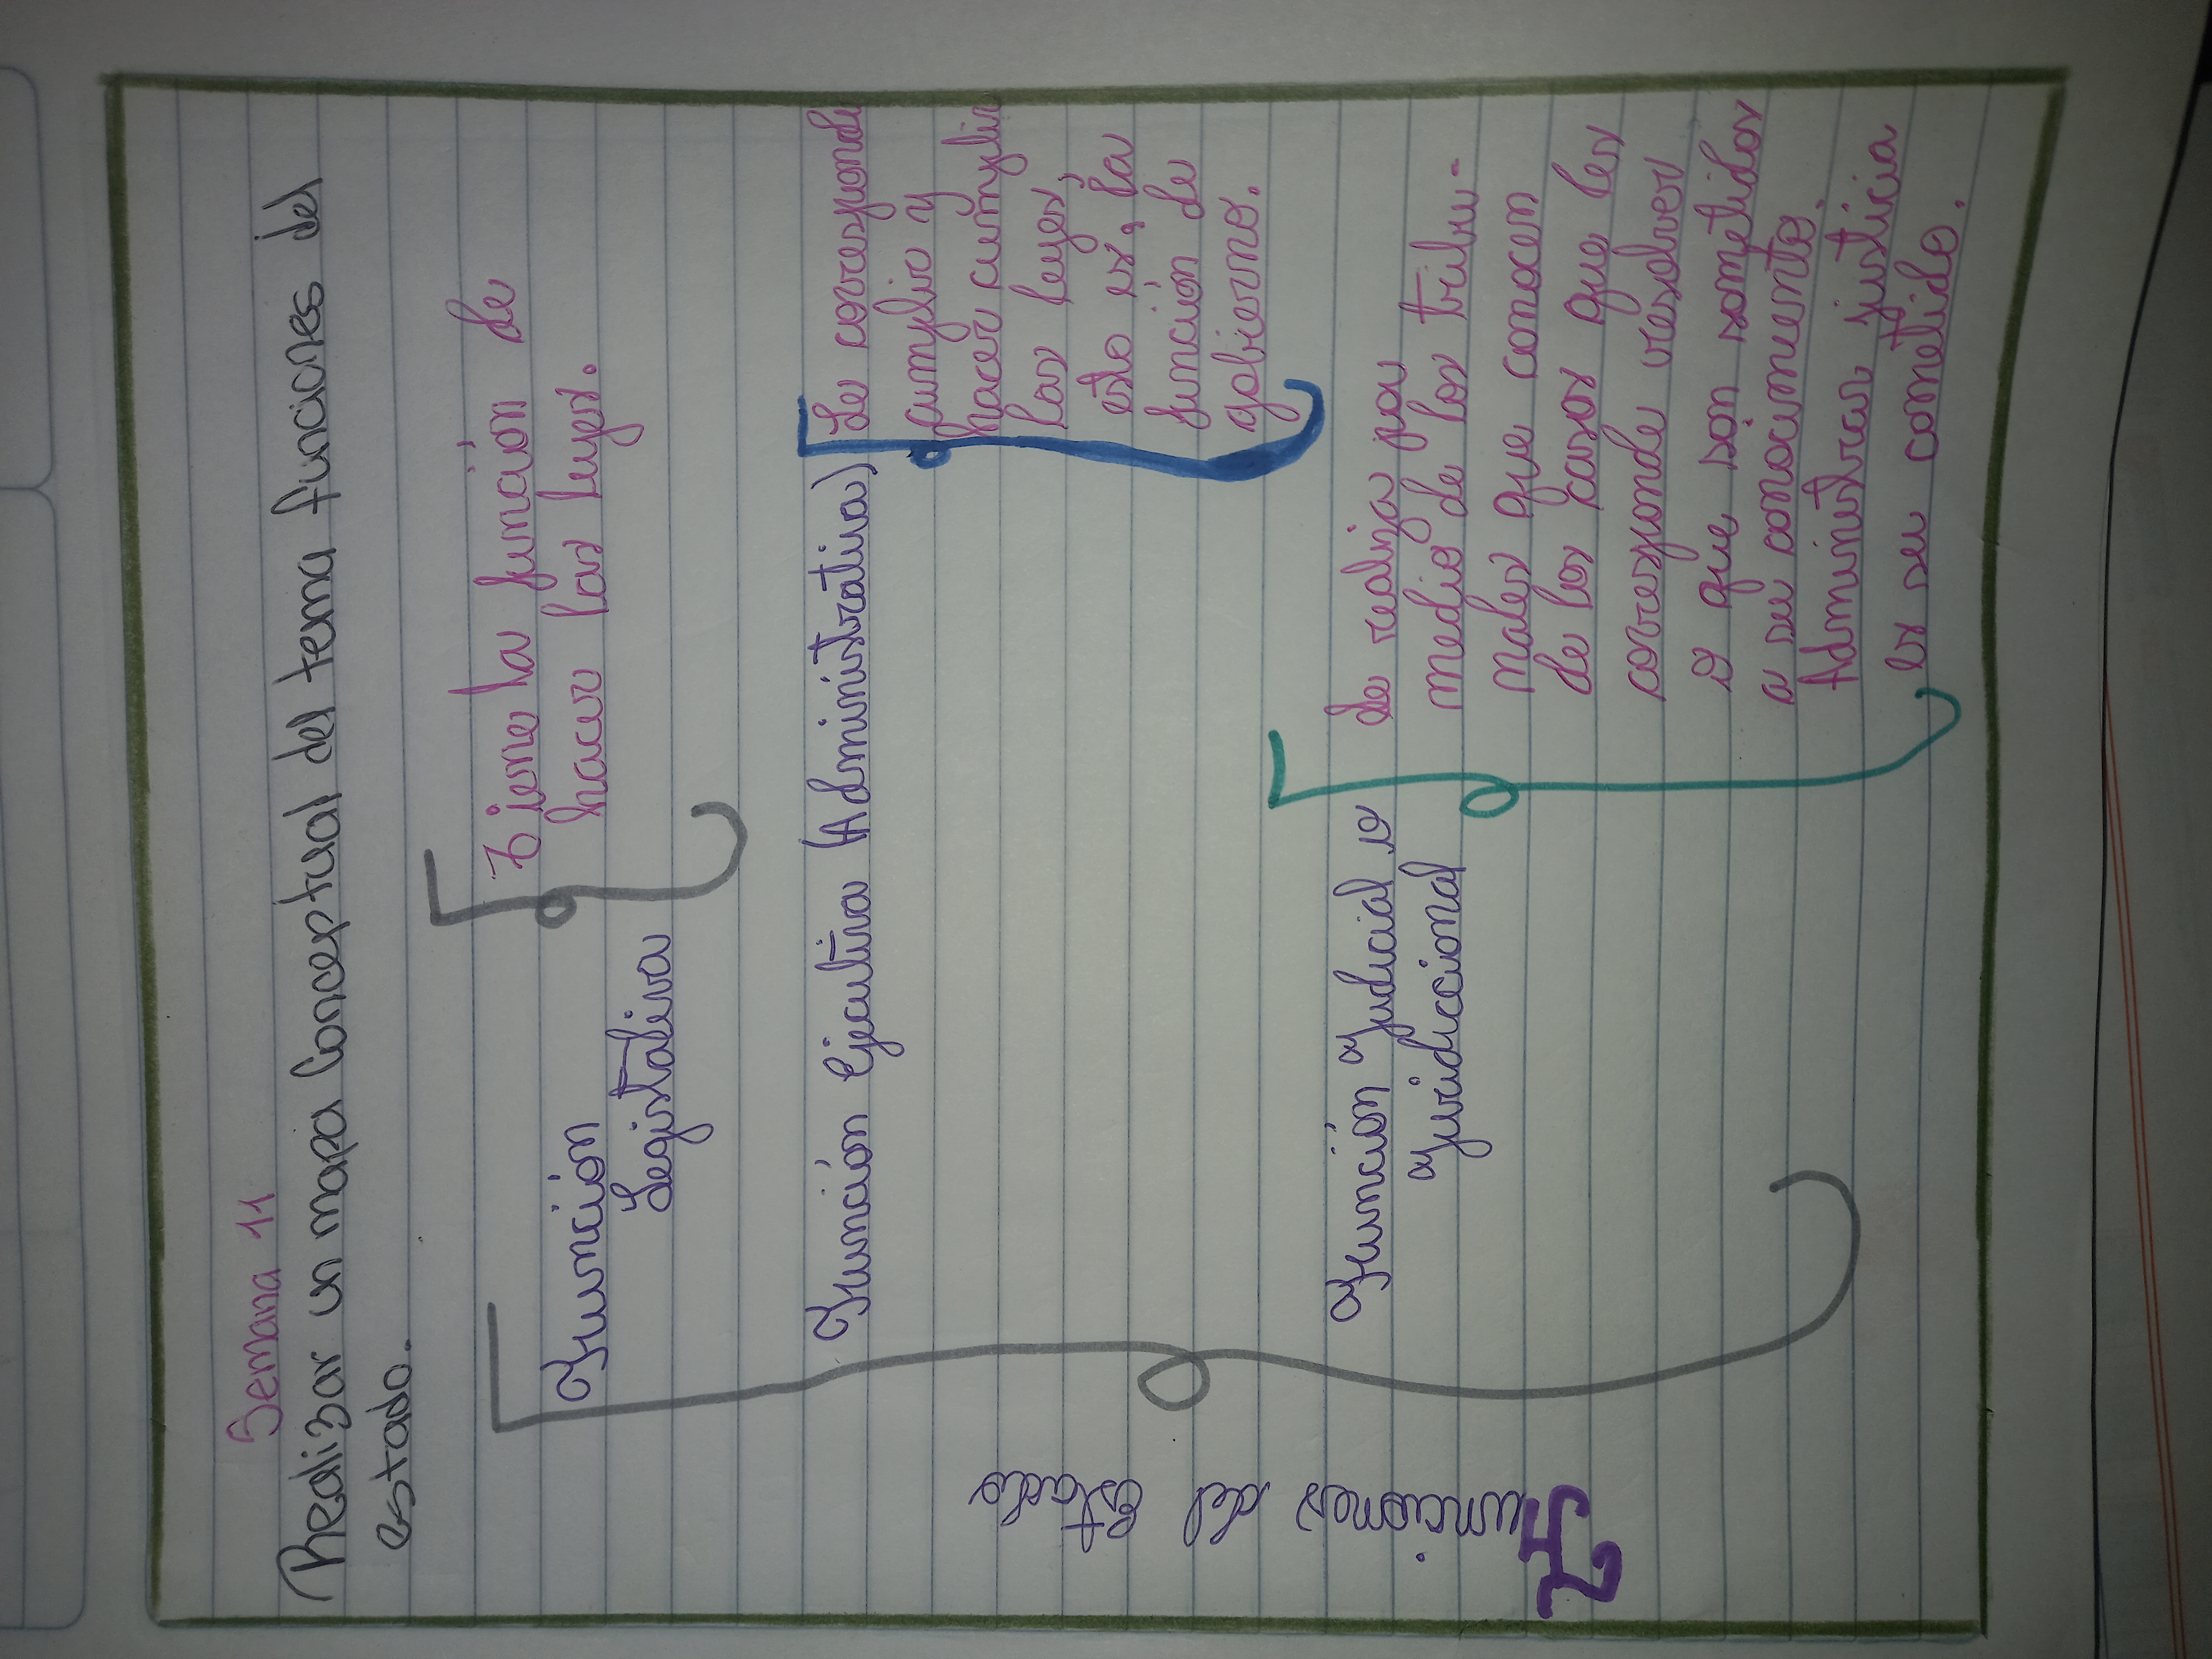 Semana 11
Realizar un mapa Conceptual del tema funciones del
estado.
Funciones del Estado
Función
Legistativa
Tiene la función de
hacer las leyes.
Función Ejecutiva (Administrativa)
Le corresponde
cumplir y
hacer cumplir
las leyes,
esto es, la
función de
gobierno.
Función Judicial o
Juridiccional
Se realiza por
medio de los tribu-
nales que conocen
de los casos que les
corresponde resolver
o que son sometidos
a su conocimiento.
Administrar justicia
es su cometido.